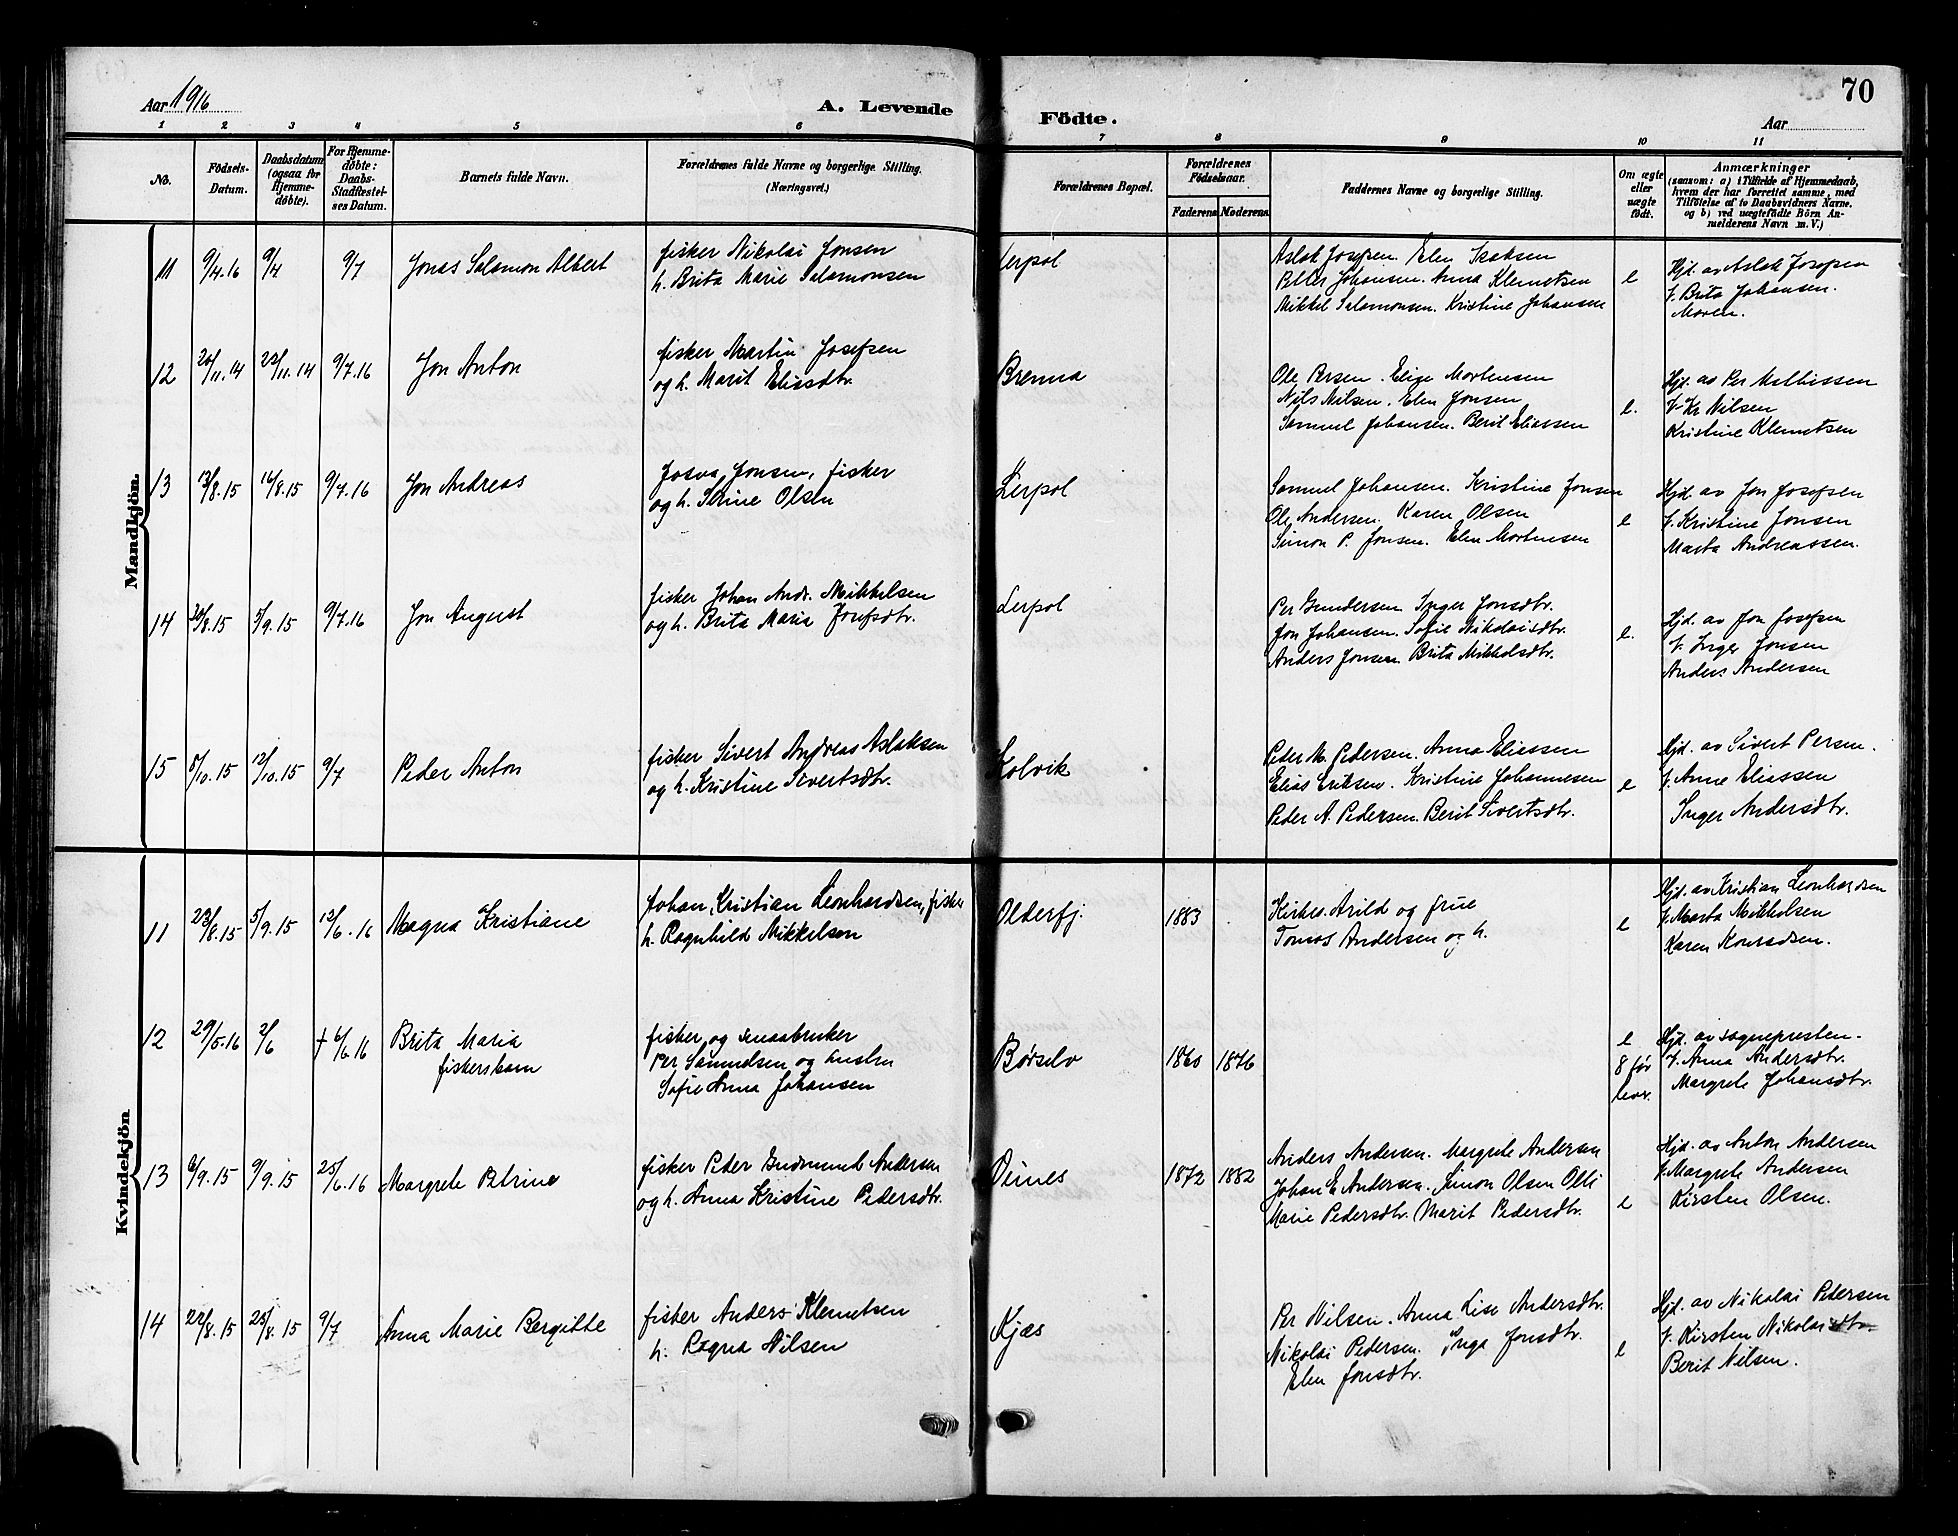 Aar 1916
A. Levende
Födte.
Aar
70
1 2 3 4 5 6 7 8 9 10 11
No.
Födsels-Datum.
Daabsdatum (ogsaa for Hjemme-døbte).
For Hjemme-døbte: Daabs-Stadfæstel-ses Datum.
Barnets fulde Navn.
Forældrenes fulde Navne og borgerlige Stilling. (Næringsvei.)
Forældrenes Bopæl.
Forældrenes Födselsaar.
Faderens Moderens
Faddernes Navne og borgerlige Stilling.
Om ægte eller uægte födt.
Anmærkninger (saasom: a) i Tilfælde af Hjemmedaab, hvem der har forrettet samme, med Tilföielse af to Daabsvidners Navne, og b) ved uægtefødte Börn An-melderens Navn m. V.)
Mandkjön.
11 9/4.16 9/4 9/7 Jonas Salamon Albert
fisker Nikolai Jonsen
h. Brita Marie Salamonsen
Lerpol
Aslak Josefsen Elen Isaksen
Petter Johansen. Anna Klemetsen
Mikkel Salamonsen. Kristine Johansen
e
Hjd. av Aslak Josefsen
V. Brita Johansen.
Moren.
12 20/11.14 22/11.14 9/7.16 Jon Anton
fisker Martin Josefsen
og h. Marit Eliasdtr.
Brenna
Ole Persen. Elige Mortensen
Nils Nilsen. Elen Jonsen
Samuel Johansen. Berit Eliassen
e.
Hjd. av Per Mathissen
V. Kr Nilsen
Kristine Klemetsen
13 13/8.15 16/8.15 9/7.16 Jon Andreas
Josva Jonsen, fisker
og h. Serine Olsen
Lerpol
Samuel Johansen. Kristine Jonsen
Ole Andersen. Karen Olsen
Simon P. Jonsen. Elen Mortensen
e
Hjd. av Jon Josefsen
V. Kristine Jonsen
Marta Andreassen.
14 30/8.15 5/9.15 9/7.16 Jon August
fisker Johan Andr. Mikkelsen
og h. Brita Maria Josefsdtr.
Lerpol
Per Gundersen Inger Jonsdtr.
Jon Johansen. Sofie Nikolaisdtr.
Anders Jonsen Brita Mikkelsdtr.
e.
Hjd. av Jon Josefsen
V. Inger Jonsen
Anders Andersen
15 5/10.15 12/10.15 9/7 Peder Anton
fisker Sivert Andreas Aslaksen
og h. Kristine Sivertsdtr.
Kolvik
Peder M. Pedersen. Anna Eliassen
Elias Eriksen. Kristine Johannesen
Peder A. Pedersen. Berit Sivertsdtr.
e
Hjd. av Sivert Persen.
V. Anne Eliassen
Inger Andersdtr.
Kvindekjön
11 23/8.15 5/9.15 12/6.16 Magna Kristiane
Johan Kristian Leonhardsen, fisker
h. Ragnhild Mikkelsen
Olderfj.
1883
Kirkes. Arild og frue
Tomas Andersen og h.
e
Hjd. av Kristian Leonhardsen
V. Marta Mikkelsen
Karen Konradsen.
12 29/5.16 2/6 † 6/6.16 Brita Maria
fiskersbarn
fisker og smaabruker
Per Samuelsen og hustru
Sofie Anna Johansen
Børselv
1860 1876
e
8 før
lev.
Hjd. av sognepresten.
V. Anna Andersdtr.
Margrete Johansdtr.
13 6/9.15 9/9.15 25/6.16 Margrete Petrine
fisker Peder Gudmund Andersen
og h. Anna Kristine Pedersdtr.
Veines
1872 1882
Anders Andersen. Margrete Andersen
Johan E Andersen. Simon Olsen Olli
Marie Pedersdtr. Marit Pedersdtr.
e
Hjd. av Anton Andersen
V. Margrete Andersen
Kirsten Olsen.
14 22/8.15 25/8.15 9/7 Anna Marie Bergitte
fisker Anders Klemetsen
h. Ragna Nilsen
Kjæs
Per Nilsen. Anna Lise Andersdtr.
Nikolai Pedersen. Inga Jonsdtr.
Elen Jonsdtr.
e
Hjd. av Nikolai Pedersen
V. Kirsten Nikolaisdtr.
Berit Nilsen.